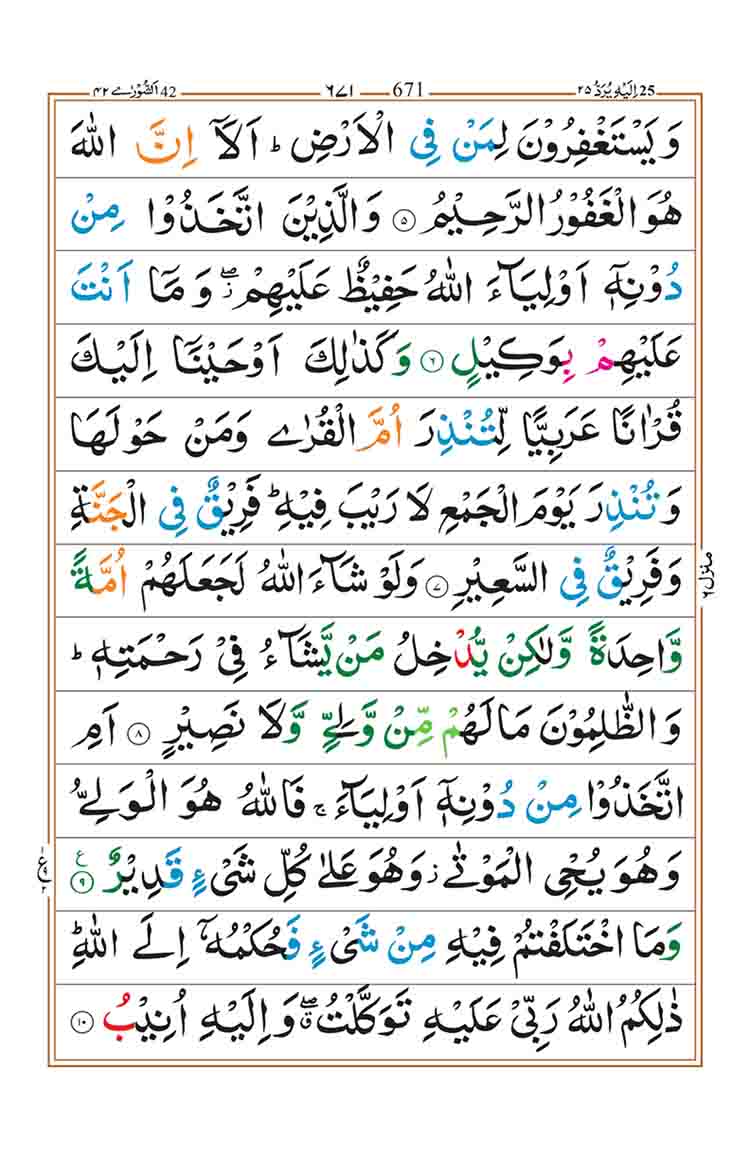 25 اِلَيْهِ يُرَدُّ ٢٥ 671 ٦٧١ 42 اَلشُّوْرٰى ٤٢
وَيَسْتَغْفِرُوْنَ لِمَنْ فِى الْاَرْضِ ؕ اَلَاۤ اِنَّ اللّٰهَ
هُوَ الْغَفُوْرُ الرَّحِيْمُ ۵ وَالَّذِيْنَ اتَّخَذُوْا مِنْ
دُوْنِهٖۤ اَوْلِيَآءَ اللّٰهُ حَفِيْظٌ عَلَيْهِمْ ۖ ز وَمَاۤ اَنْتَ
عَلَيْهِمْ بِوَكِيْلٍ ۶ وَكَذٰلِكَ اَوْحَيْنَاۤ اِلَيْكَ
قُرْاٰنًا عَرَبِيًّا لِّتُنْذِرَ اُمَّ الْقُرٰى وَمَنْ حَوْلَهَا
وَتُنْذِرَ يَوْمَ الْجَمْعِ لَا رَيْبَ فِيْهِ ؕ فَرِيْقٌ فِى الْجَنَّةِ
وَفَرِيْقٌ فِى السَّعِيْرِ ۷ وَلَوْ شَآءَ اللّٰهُ لَجَعَلَهُمْ اُمَّةً
وَّاحِدَةً وَّلٰكِنْ يُّدْخِلُ مَنْ يَّشَآءُ فِىْ رَحْمَتِهٖ ؕ
وَالظّٰلِمُوْنَ مَا لَهُمْ مِّنْ وَّلِىٍّ وَّلَا نَصِيْرٍ ۸ اَمِ
اتَّخَذُوْا مِنْ دُوْنِهٖۤ اَوْلِيَآءَ ۚ فَاللّٰهُ هُوَ الْوَلِىُّ
وَهُوَ يُحْىِ الْمَوْتٰى ز وَهُوَ عَلٰى كُلِّ شَىْءٍ قَدِيْرٌ ۹ ع
وَمَا اخْتَلَفْتُمْ فِيْهِ مِنْ شَىْءٍ فَحُكْمُهٗۤ اِلَى اللّٰهِ ؕ
ذٰلِكُمُ اللّٰهُ رَبِّىْ عَلَيْهِ تَوَكَّلْتُ ۖ ق وَاِلَيْهِ اُنِيْبُ ۱۰
منزل ٦
ع ٩ ٢